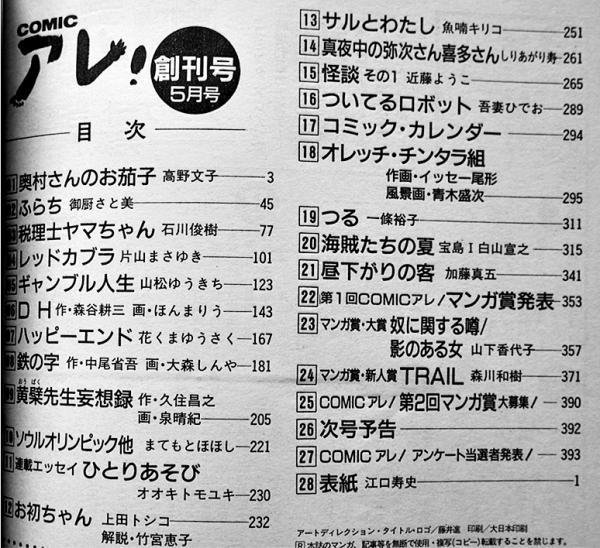 COMIC
アレ!
創刊号
5月号
目次
01 奥村さんのお茄子 高野文子 3
02 ふらち 御厨さと美 45
03 税理士ヤマちゃん 石川俊樹 77
04 レッドカブラ 片山まさゆき 101
05 ギャンブル人生 山松ゆうきち 123
06 DH 作・森谷耕三 画・ほんまりう 143
07 ハッピーエンド 花くまゆうさく 167
08 鉄の字 作・中尾省吾 画・大森しんや 181
おうばく
09 黄檗先生妄想録 作・久住昌之
画・泉晴紀 205
10 ソウルオリンピック他 まてもとほほし 221
11 連載エッセイ ひとりあそび
オオキトモユキ 230
12 お初ちゃん 上田トシコ 232
解説・竹宮恵子
13 サルとわたし 魚喃キリコ 251
14 真夜中の弥次さん喜多さん しりあがり寿 261
15 怪談 その1 近藤ようこ 265
16 ついてるロボット 吾妻ひでお 289
17 コミック・カレンダー 294
18 オレッチ・チンタラ組
作画・イッセー尾形
風景画・青木盛次 295
19 つる 一條裕子 311
20 海賊たちの夏 宝島I白山宣之 315
21 昼下がりの客 加藤真五 341
22 第1回COMICアレ!マンガ賞発表 353
23 マンガ賞・大賞 奴に関する噂/
影のある女 山下香代子 357
24 マンガ賞・新人賞 TRAIL 森川和樹 371
25 COMICアレ!第2回マンガ賞大募集! 390
26 次号予告 392
27 COMICアレ!アンケート当選者発表! 393
28 表紙 江口寿史 1
アートディレクション・タイトル・ロゴ/藤井進 印刷/大日本印刷
R 本誌のマンガ、記事等を無断で使用・複写(コピー)することを禁じます。